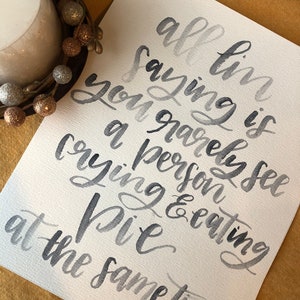 all I'm
saying is
you rarely see
a person
crying & eating
pie
at the same